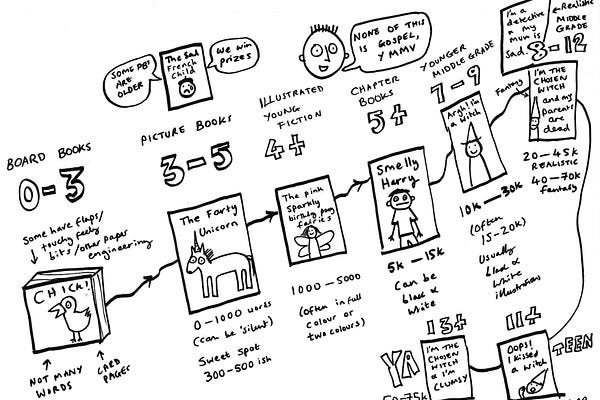 BOARD BOOKS
0-3
Some have flaps/
touchy feely
bits/other paper
engineering
CHICK!
NOT MANY
WORDS
CARD
PAGES
SOME PBs
ARE
OLDER
The Sad
French
Child
We win
prizes
PICTURE BOOKS
3-5
The Farty
Unicorn
0-1000 words
(can be 'silent')
Sweet Spot
300-500 ish
ILLUSTRATED
YOUNG
FICTION
4+
The pink
Sparkly
birthday pony
fairies
1000-5000
(often in full
colour or
two colours)
NONE OF THIS
IS GOSPEL,
YMMV
CHAPTER
BOOKS
5+
Smelly
Harry
5k-15k
Can be
black &
white
YOUNGER
MIDDLE GRADE
7-9
Argh! I'm
a witch
10k-30k
(often
15-20k)
Usually
black &
white
illustrations
I'm a
detective
& my
mum is
Sad.
Realistic
MIDDLE
GRADE
8-12
Fantasy
I'M THE
CHOSEN
WITCH
and my
parents
are
dead
20-45k
REALISTIC
40-70k
fantasy
11+
TEEN
OOPS!
I kissed
a witch
13+
YA
I'M THE
CHOSEN
WITCH
& I'M
CLUMSY
50-75k